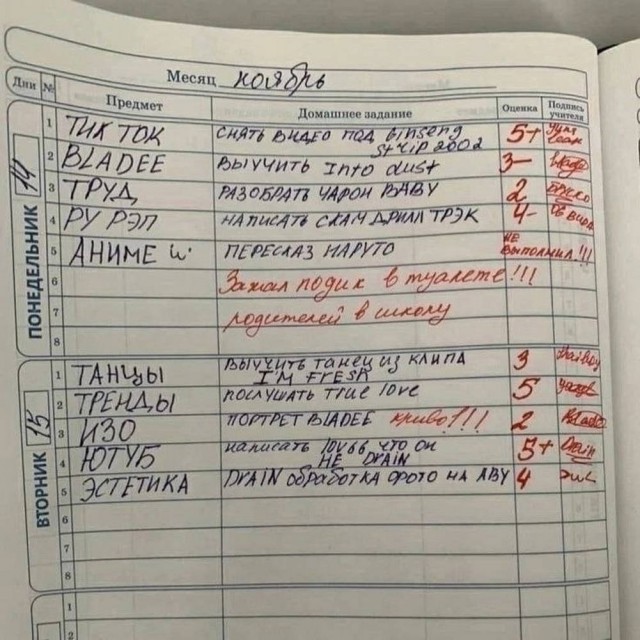 Месяц ноябрь
Дни № Предмет Домашнее задание Оценка Подпись учителя
ПОНЕДЕЛЬНИК 14
1 ТИК ТОК СНЯТЬ ВИДЕО ПОД Ginseng Strip 2002 5+ Yung Lean
2 BLADEE ВЫУЧИТЬ Into dust 3-
3 ТРУД РАЗОБРАТЬ ЧАРОН BABY 2
4 РУ РЭП НАПИСАТЬ СКАМ ДРИЛЛ ТРЭК 4-
5 АНИМЕ ПЕРЕСКАЗ НАРУТО НЕ ВЫПОЛНИЛ!!!
6 Зажал подик в туалете!!!
7 родителей в школу
8
ВТОРНИК 15
1 ТАНЦЫ ВЫУЧИТЬ танец из КЛИПА I'M FRESH 3
2 ТРЕНДЫ ПОСЛУШАТЬ True love 5
3 ИЗО ПОРТРЕТ BLADEE криво!!! 2 Bladee
4 ЮТУБ написать 10v66 что он НЕ DRAIN 5+ Drain
5 ЭСТЕТИКА DRAIN обработка фото на АВУ 4
6
7
8
1
2